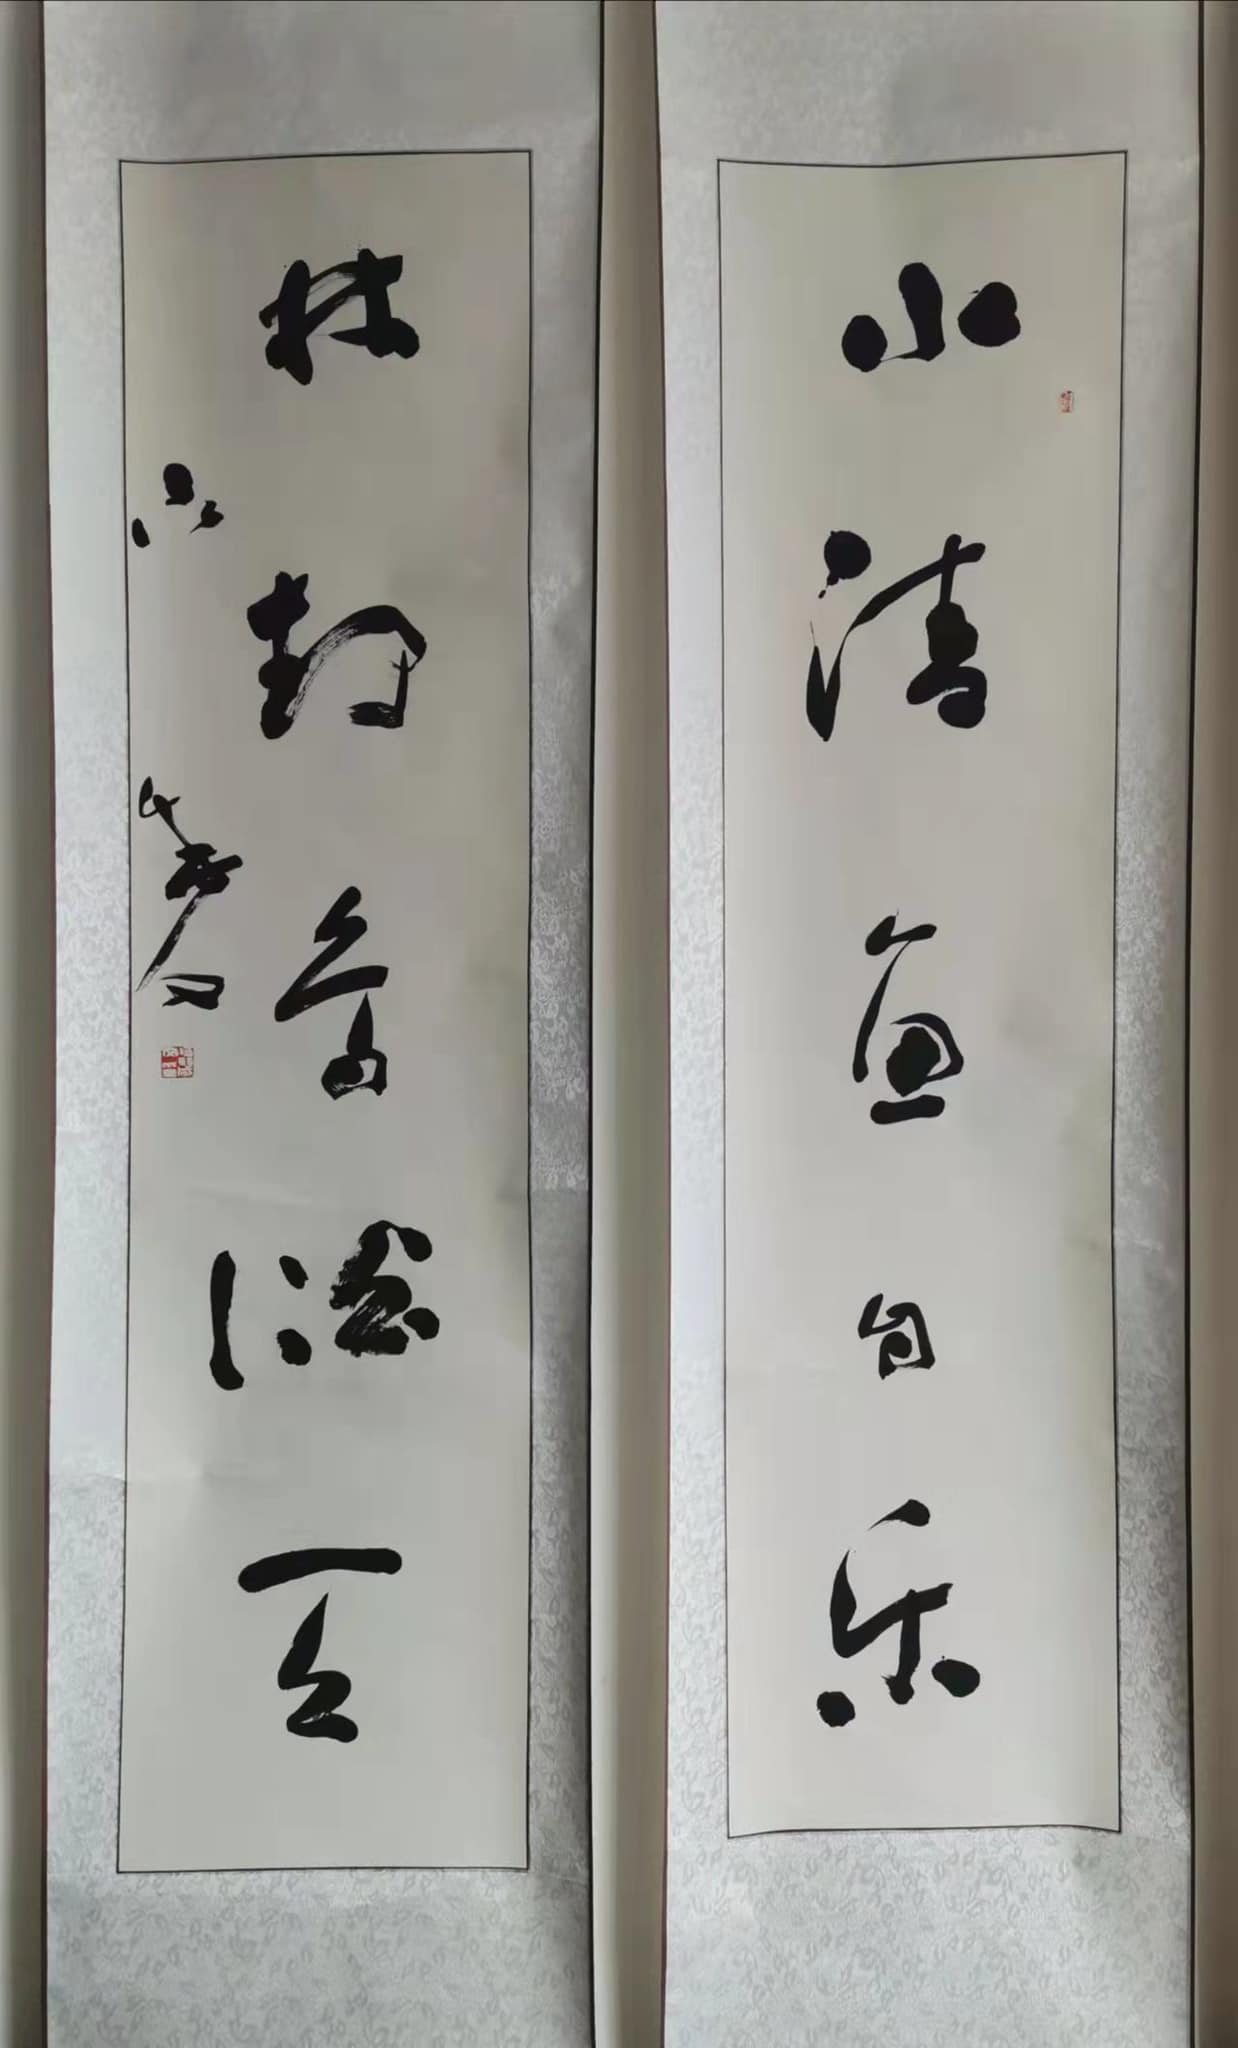 水清鱼自乐
林静鸟谈天